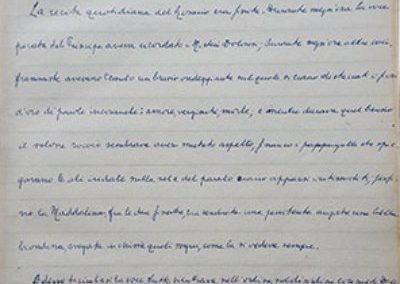 La recita quotidiana del Rosario era finita. Durante mezz'ora la voce
pacata del Principe aveva ricordato i Misteri Dolorosi; durante mezz'ora altre voci,
frammiste avevano tessuto un brusio ondeggiante sul quale si erano distaccati i fiori
d'oro di parole inconsuete: amore, verginità, morte; e mentre durava quel brusio
il salone rococò sembrava aver mutato aspetto; financo i pappagalli che spie-
gavano le ali iridate sulla seta del parato erano apparsi intimiditi; perfi-
no la Maddalena, fra le due finestre, era sembrata una penitente anziché una bella
biondona, svagata in chissà quali sogni, come la si vedeva sempre.
Adesso taciutasi la voce tutto rientrava nell'ordine, nel disordine